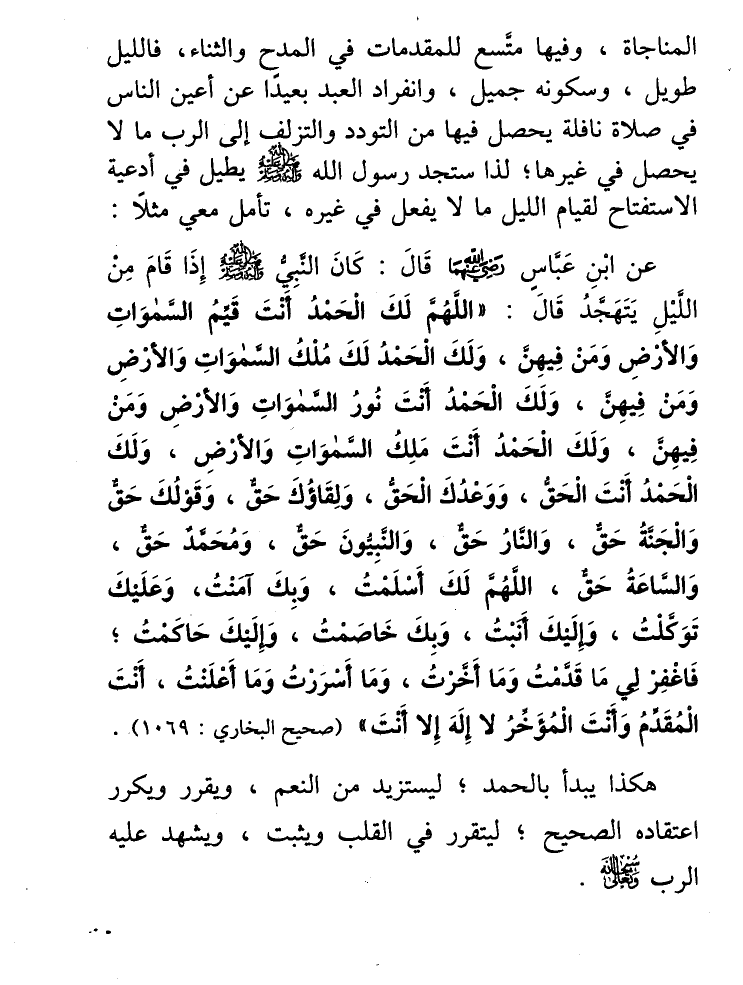 المناجاة ، وفيها متَّسع للمقدمات في المدح والثناء، فالليل
طويل ، وسكونه جميل ، وانفراد العبد بعيدًا عن أعين الناس
في صلاة نافلة يحصل فيها من التودد والتزلف إلى الرب ما لا
يحصل في غيرها؛ لذا ستجد رسول الله ﷺ يطيل في أدعية
الاستفتاح لقيام الليل ما لا يفعل في غيره ، تأمل معي مثلًا :
عن ابْنِ عَبَّاسٍ رَضِيَ اللَّهُ عَنْهُمَا قَالَ : كَانَ النَّبِيُّ ﷺ إِذَا قَامَ مِنْ
اللَّيْلِ يَتَهَجَّدُ قَالَ : «اللَّهُمَّ لَكَ الْحَمْدُ أَنْتَ قَيِّمُ السَّمٰوَاتِ
وَالأَرْضِ وَمَنْ فِيهِنَّ ، وَلَكَ الْحَمْدُ لَكَ مُلْكُ السَّمٰوَاتِ وَالأَرْضِ
وَمَنْ فِيهِنَّ ، وَلَكَ الْحَمْدُ أَنْتَ نُورُ السَّمٰوَاتِ وَالأَرْضِ وَمَنْ
فِيهِنَّ ، وَلَكَ الْحَمْدُ أَنْتَ مَلِكُ السَّمٰوَاتِ وَالأَرْضِ ، وَلَكَ
الْحَمْدُ أَنْتَ الْحَقُّ ، وَوَعْدُكَ الْحَقُّ ، وَلِقَاؤُكَ حَقٌّ ، وَقَوْلُكَ حَقٌّ
وَالْجَنَّةُ حَقٌّ ، وَالنَّارُ حَقٌّ ، وَالنَّبِيُّونَ حَقٌّ ، وَمُحَمَّدٌ حَقٌّ ،
وَالسَّاعَةُ حَقٌّ ، اللَّهُمَّ لَكَ أَسْلَمْتُ ، وَبِكَ آمَنْتُ، وَعَلَيْكَ
تَوَكَّلْتُ ، وَإِلَيْكَ أَنَبْتُ ، وَبِكَ خَاصَمْتُ ، وَإِلَيْكَ حَاكَمْتُ ؛
فَاغْفِرْ لِي مَا قَدَّمْتُ وَمَا أَخَّرْتُ ، وَمَا أَسْرَرْتُ وَمَا أَعْلَنْتُ ، أَنْتَ
الْمُقَدِّمُ وَأَنْتَ الْمُؤَخِّرُ لا إِلَهَ إِلا أَنْتَ» (صحيح البخاري : ١٠٦٩) .
هكذا يبدأ بالحمد ؛ ليستزيد من النعم ، ويقرر ويكرر
اعتقاده الصحيح ؛ ليتقرر في القلب ويثبت ، ويشهد عليه
الرب سُبْحَانَهُ وَتَعَالَى .